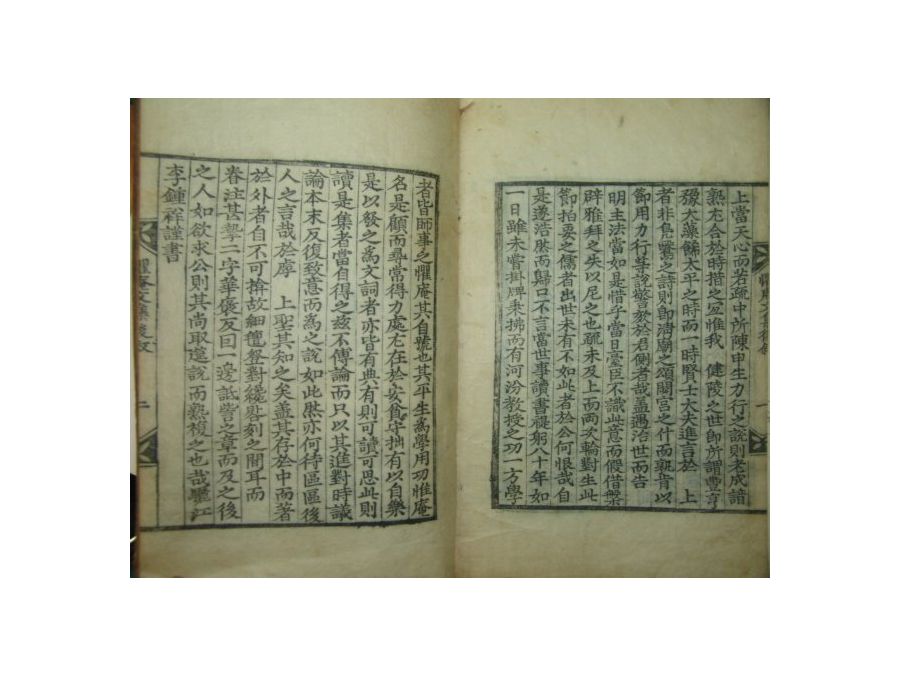 上當天心而若疏中所陳申生力行之說則老成諳
熟尤合於時措之宜惟我 健陵之世卽所謂豊亨
豫大藻餙太平之時而一時賢士大夫進言於 上
者非鳧鷖之詩則卽淸廟之頌閟宮之什而孰肯以
節用力行等說警欬於君側者哉盖遇治世而告
明主法當如是惜乎當日臺臣不識此意而假借槃
辟雅拜之失以尼之也疏未及上而兩次輪對生此
節拍柔之儒者出世未有不如此者於公何恨哉自
是遂浩然而歸口不言當世事讀書礙躬八十年如
一日雖未嘗掛牌秉拂而有河汾敎授之功一方學
者皆師事之懼庵其自號也其平生爲學用功惟庵
名是顧而尋常得力處尤在於安貧守拙有以自樂
是以發之爲文詞者亦皆有典有則可讀可思此則
讀是集者當自得之玆不傳論而只以其進對時議
論本末反復致意而爲之說如此然亦何待區區後
人之言哉於虖 上聖其知之矣盖其存於中而著
於外者自不可揜故細氊登對纔晷刻之間耳而
眷注甚摯二字華褒反回一邊詆訾之章而及之後
之人如欲求公則其尚取違說而熟複之也哉驪江
李鍾祥謹書
懼庵文集後叙
二
一